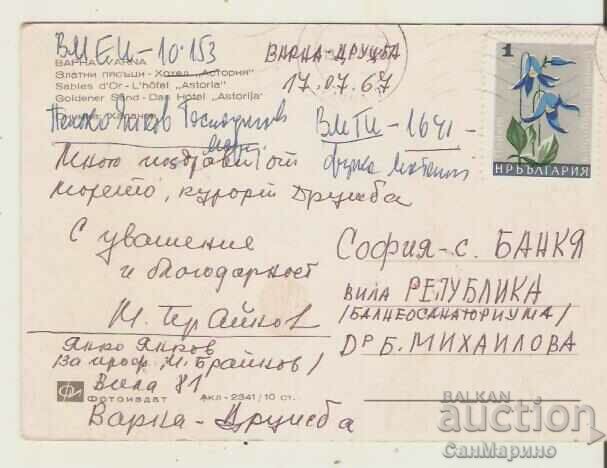 ВМЕИ-10.153
ВАРНА VARNA
Златни пясъци - Хотел „Астория"
Sables d'Or - L'hôtel „Astoria"
Goldener Sand - Das Hotel „Astorija"
ВАРНА-ДРУЖБА
17.07.67
ВМТИ-1641-
Много поздрави от
морето, курорт Дружба
С уважение
и благодарност
Янко Янков
/за проф. М. Брайков/
Вила 81
Варна-Дружба
1
НРБЪЛГАРИЯ
СОФИЯ-с. БАНКЯ
ВИЛА РЕПУБЛИКА
/БАЛНЕОСАНАТОРИУМА/
Др Б. МИХАИЛОВА
Фотоиздат Акл-2341/10 ст.
BALKAN
auction
СанМарино